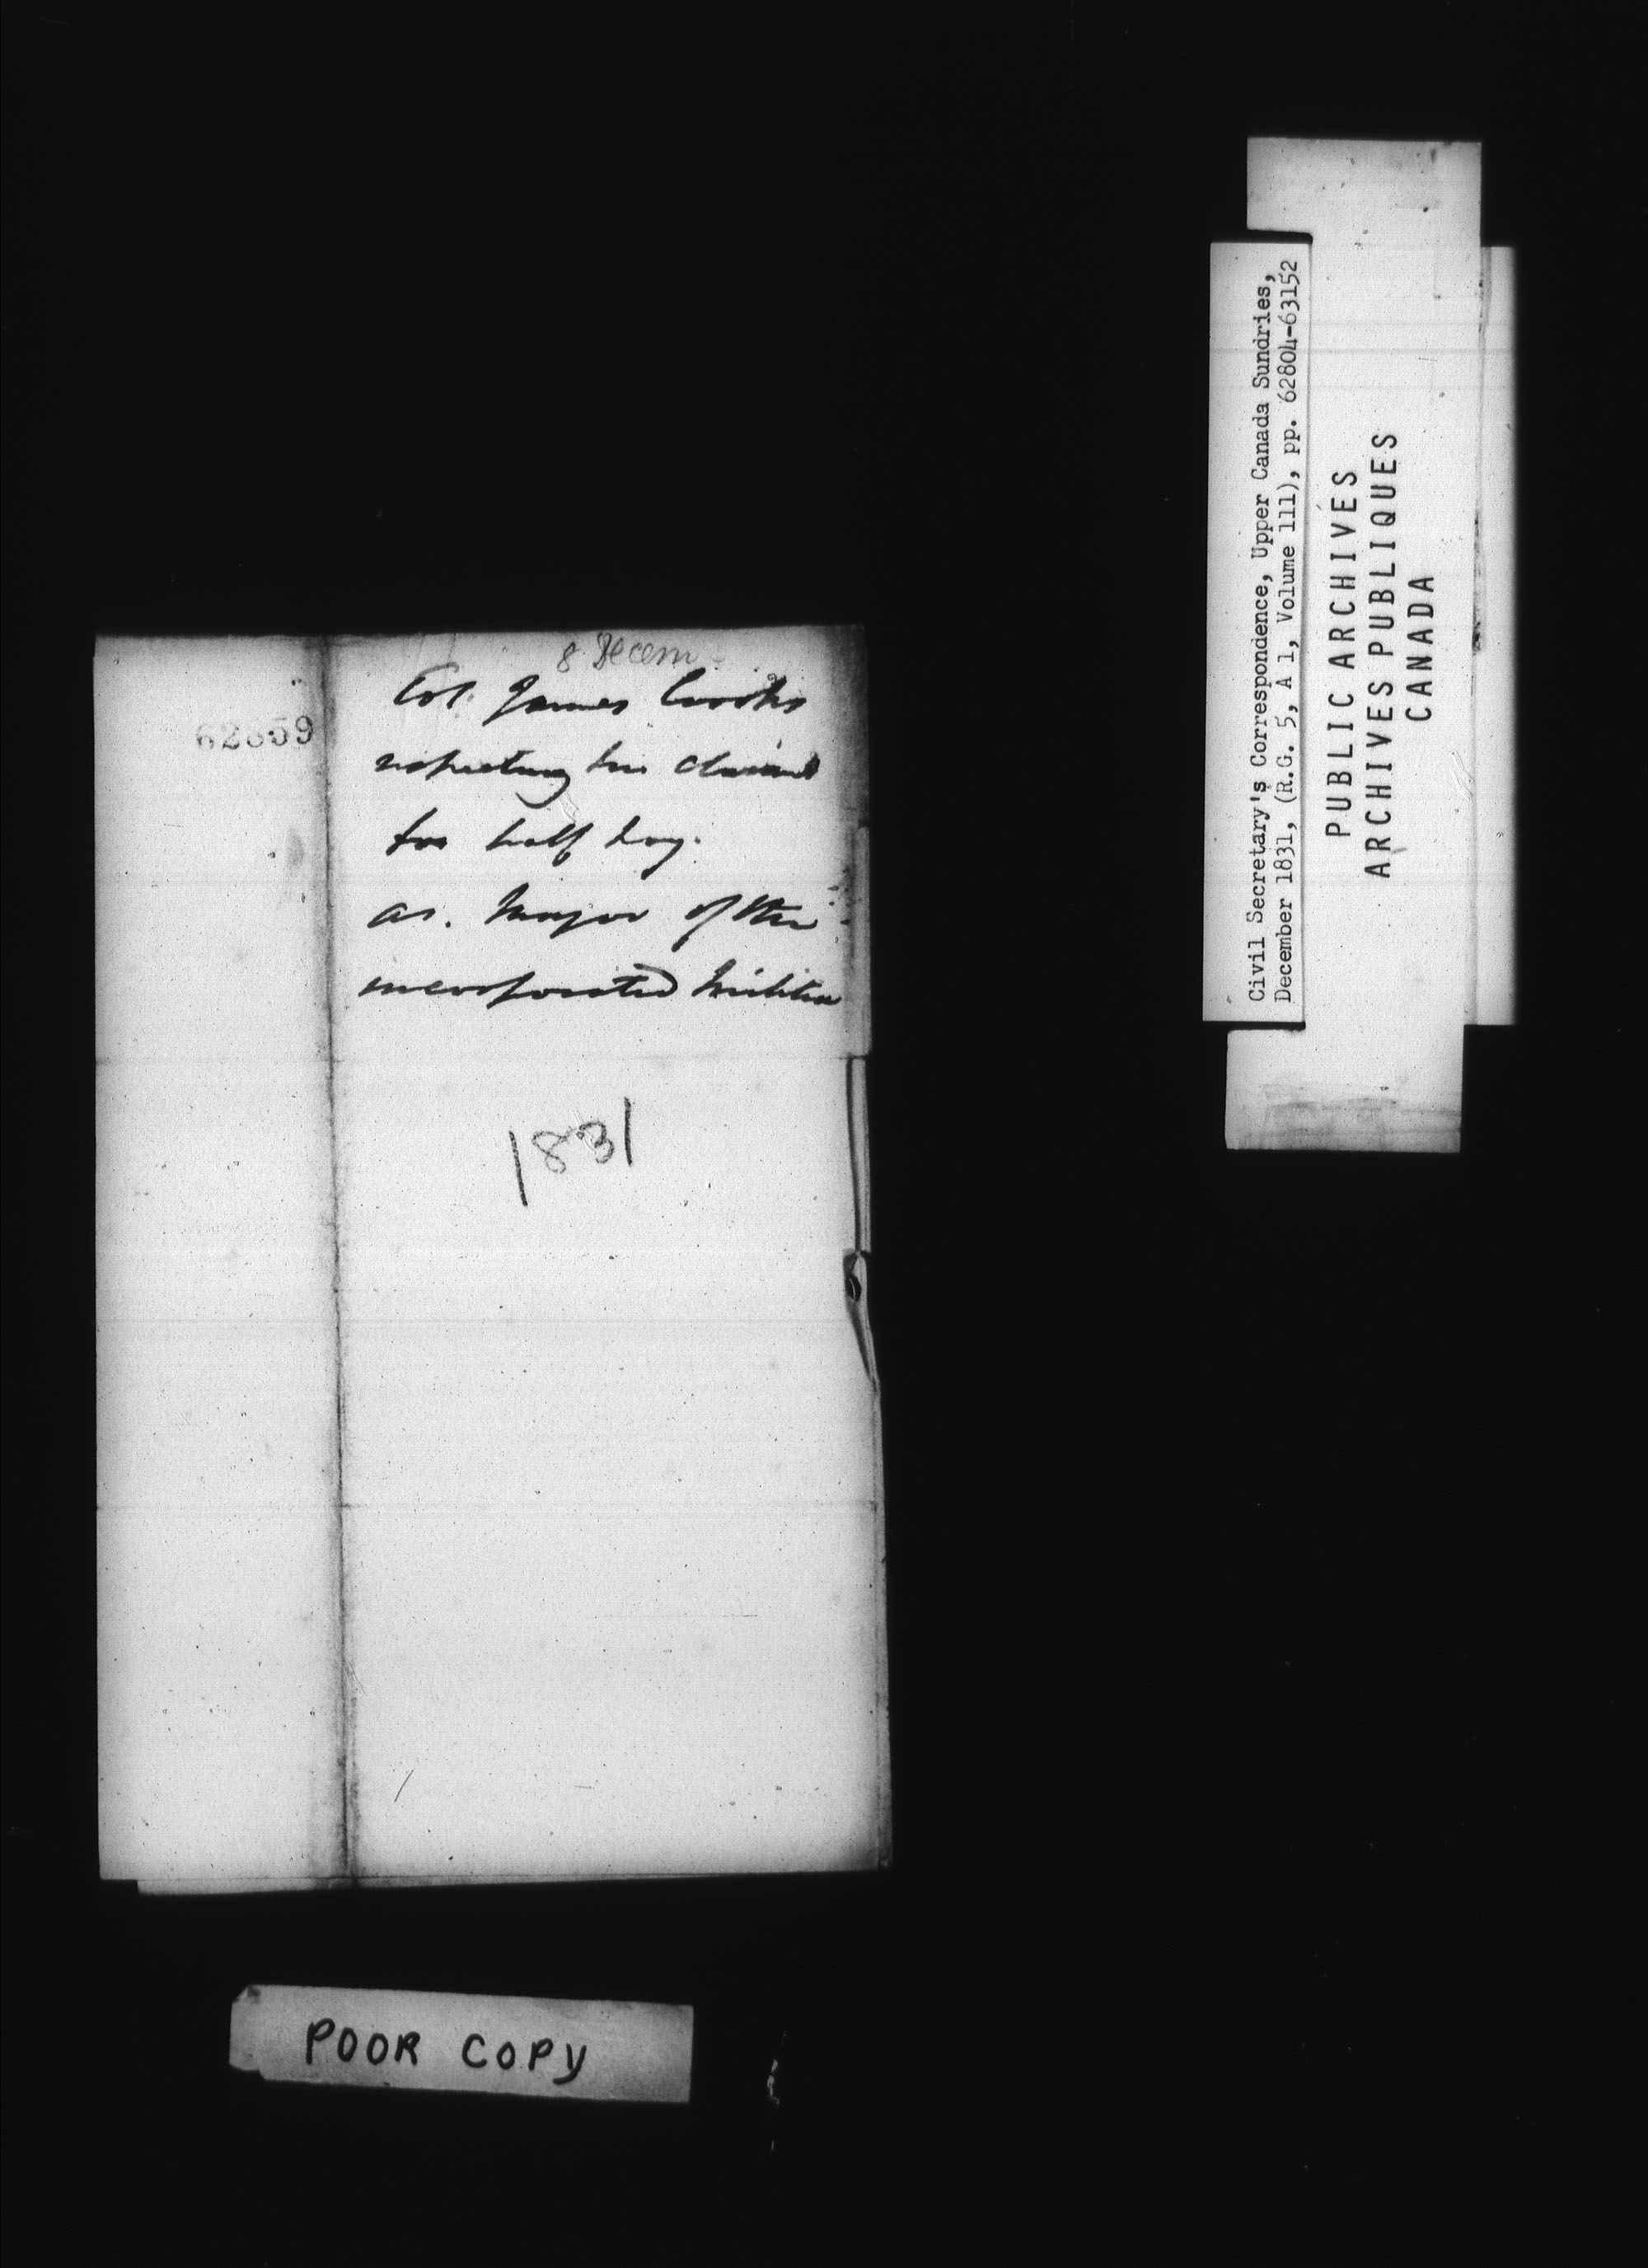 8 Decem
Col. James Crooks
respecting his claim
for half Pay.
as. Major of the
incorporated Militia
1831
POOR COPY
Civil Secretary's Correspondence, Upper Canada Sundries,
December 1831, (R.G. 5, A 1, Volume 111), pp. 62804-63152
PUBLIC ARCHIVES
ARCHIVES PUBLIQUES
CANADA